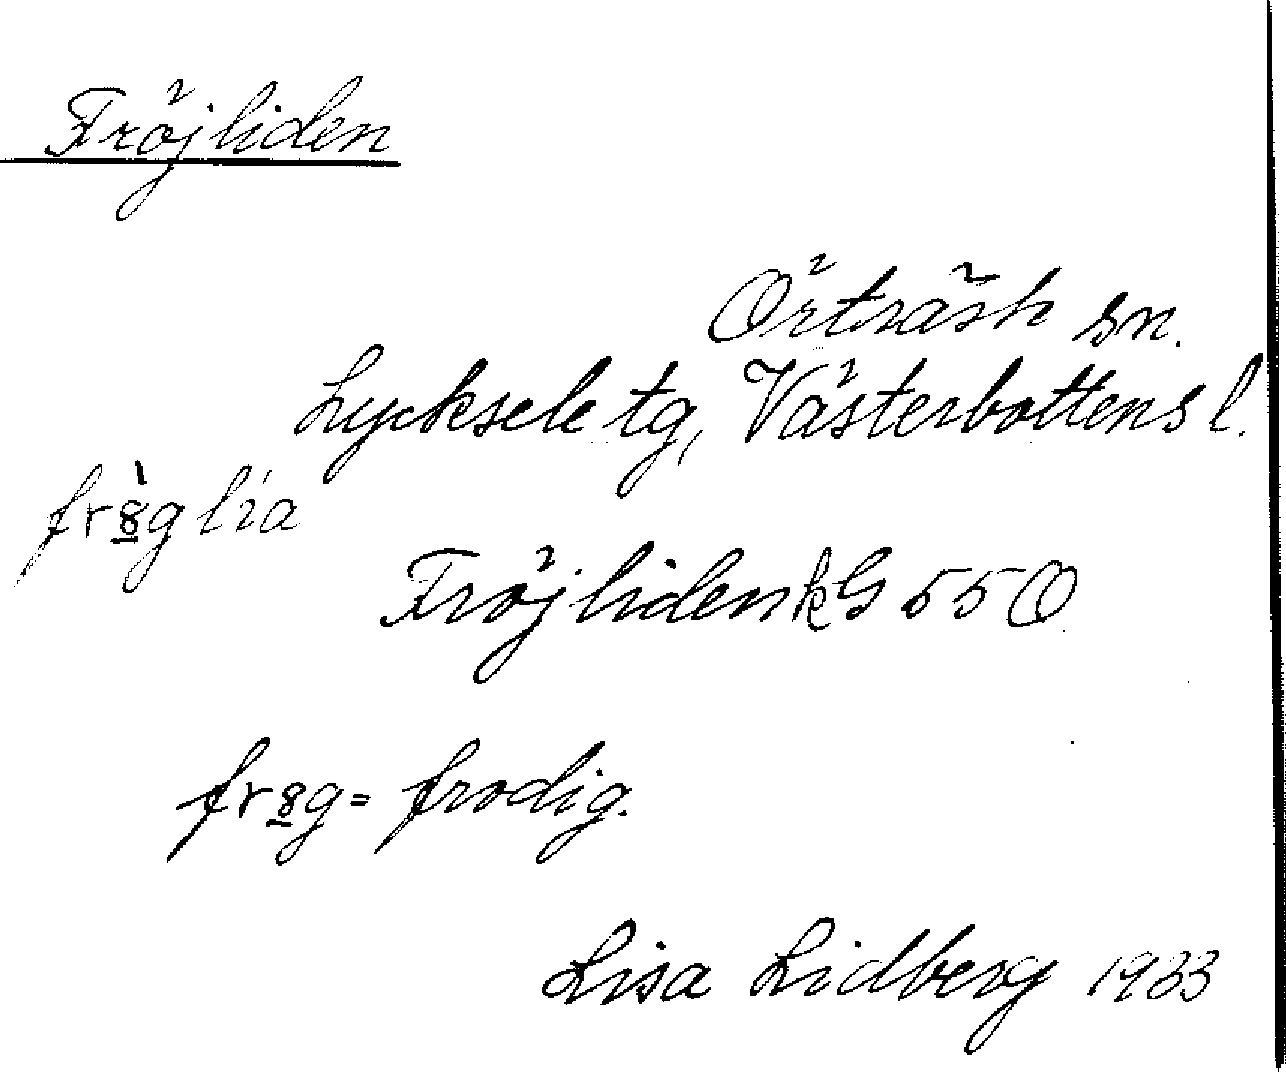 Fröjliden
Örträsk sn.
Lycksele tg, Västerbottens l.
lia
Fröjliden k G 55 O
= frodig.
Lisa Lidberg 1933